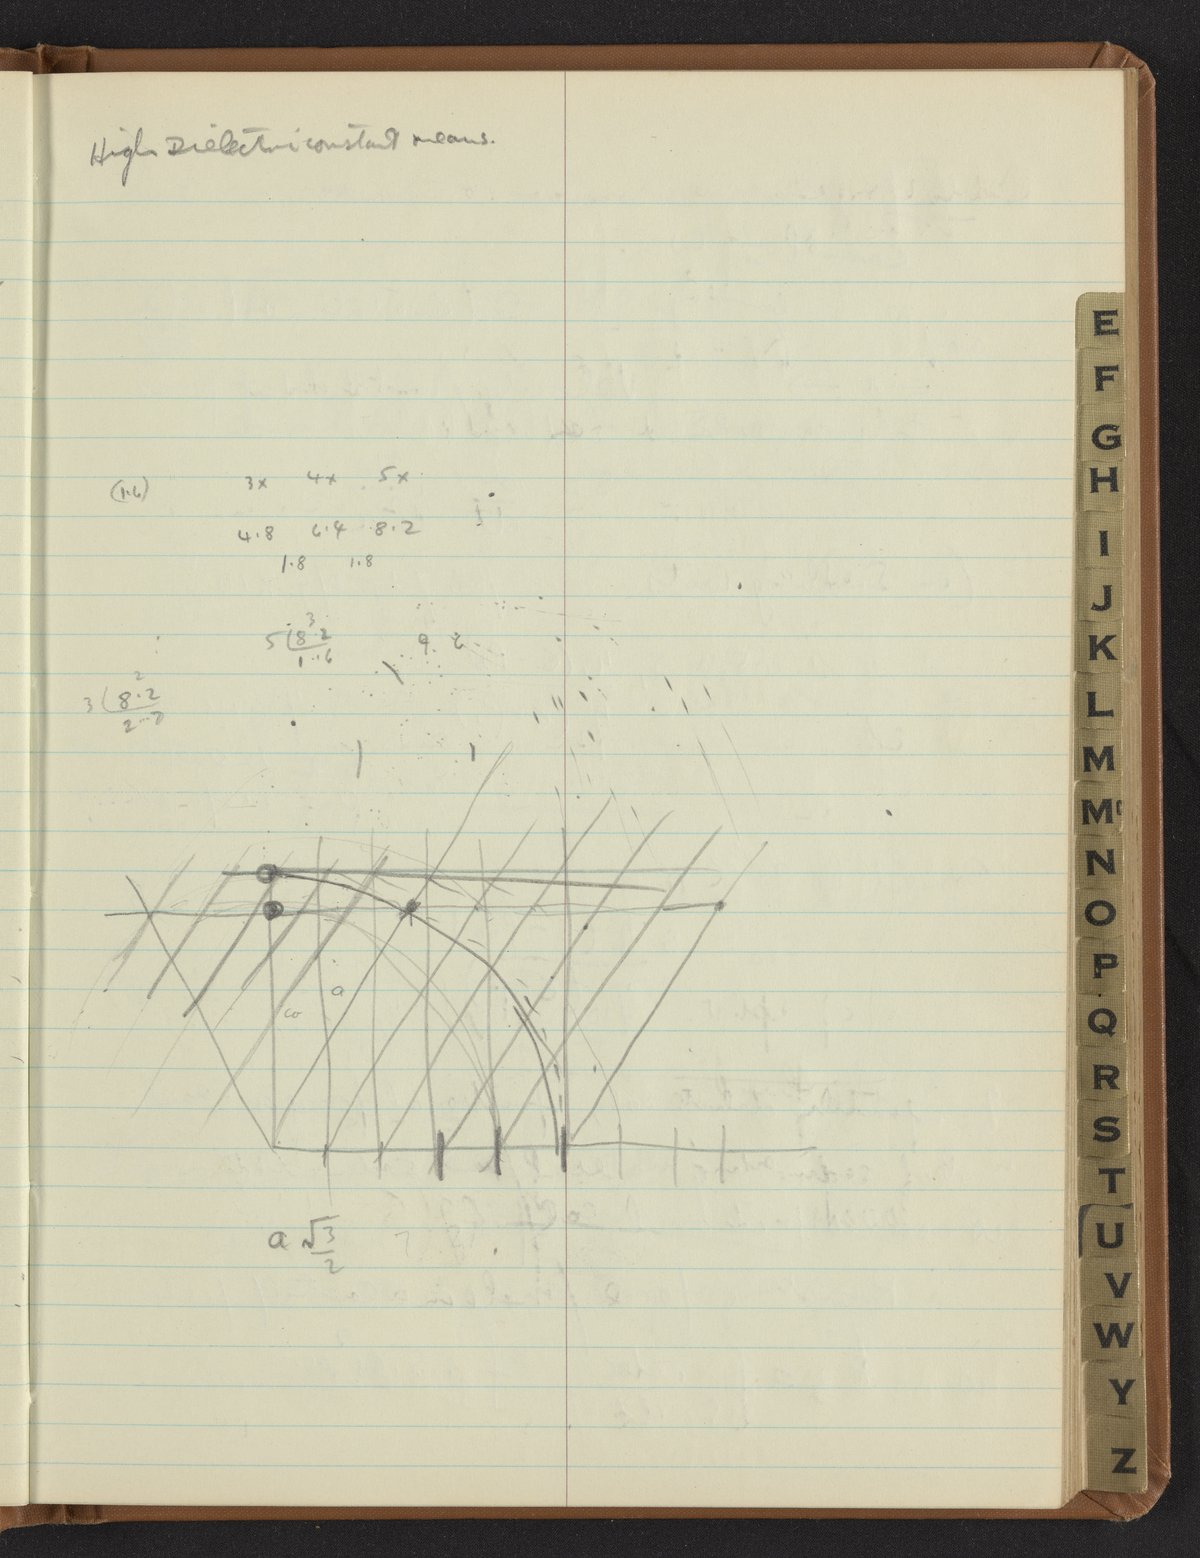 High Dielectric constant means.
(1.6) 3x 4x 5x
4.8 6.4 8.2
1.8 1.8
3
5 8.2
1.6
9.
2
3 8.2
2.7
a
a √3
2
E
F
G
H
I
J
K
L
M
Mc
N
O
P
Q
R
S
T
U
V
W
Y
Z